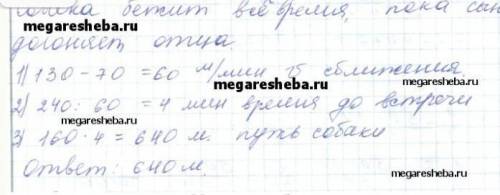 собака бежит всё время, пока сын
megaresheba.ru
догоняет отца.
megaresheba.ru
1) 130 - 70 = 60 м/мин V сближения
megaresheba.ru
2) 240 : 60 = 4 мин время до встречи
megaresheba.ru
megaresheba.ru
3) 160 · 4 = 640 м. путь собаки
megaresheba.ru
Ответ: 640 м.